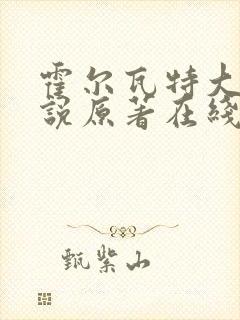 霍尔瓦特大
说原著在线
甄紫山